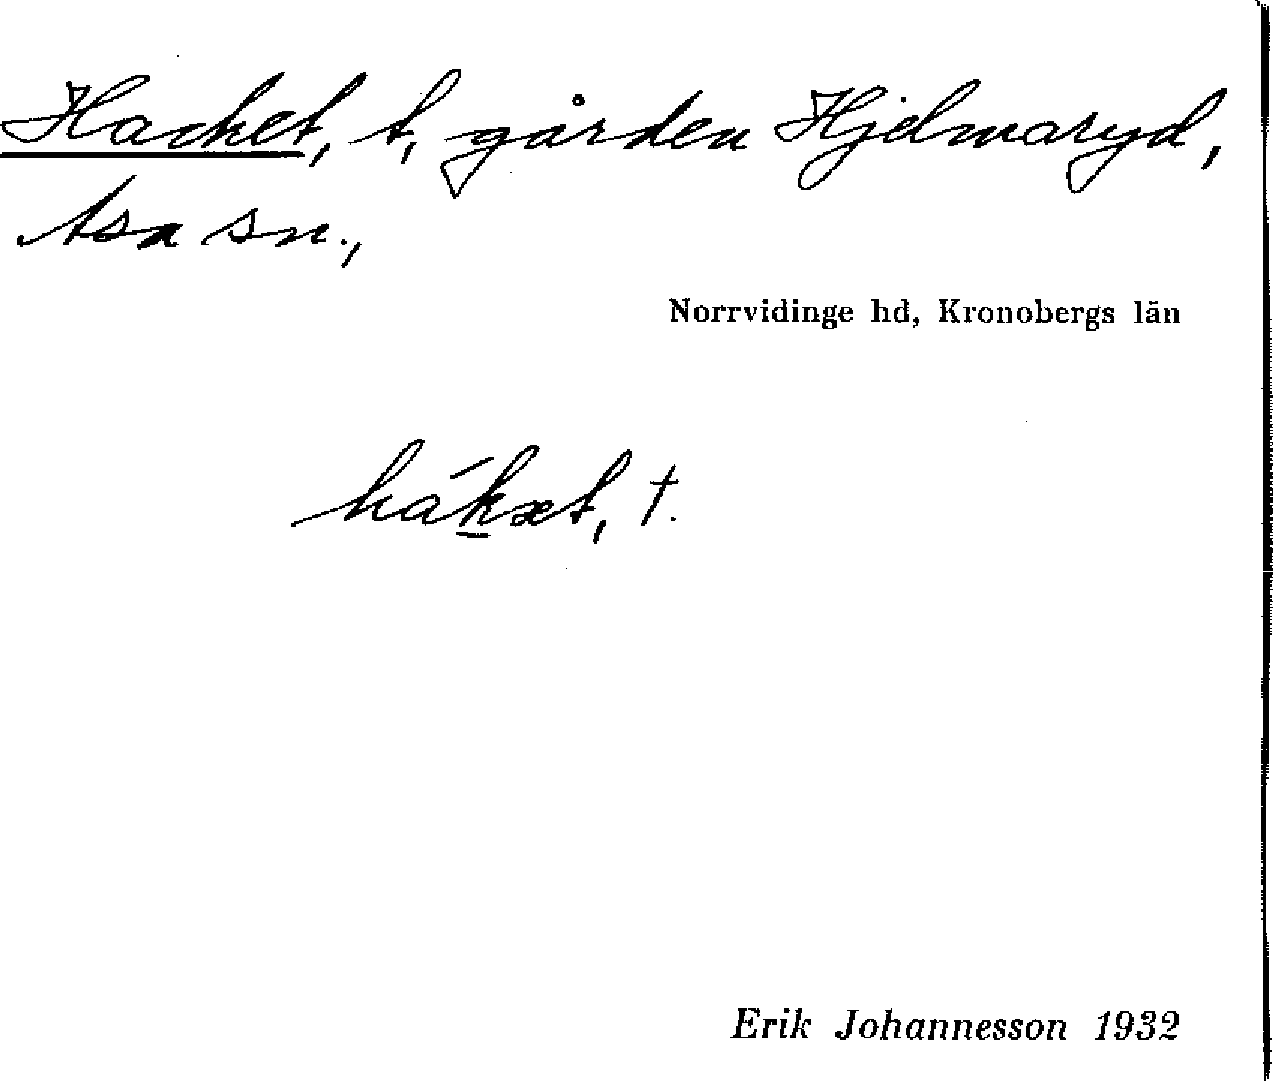 Hacket, t, gården Hjelmaryd,
Asa sn.,
Norrvidinge hd, Kronobergs län
hák̲æt, †.
Erik Johannesson 1932